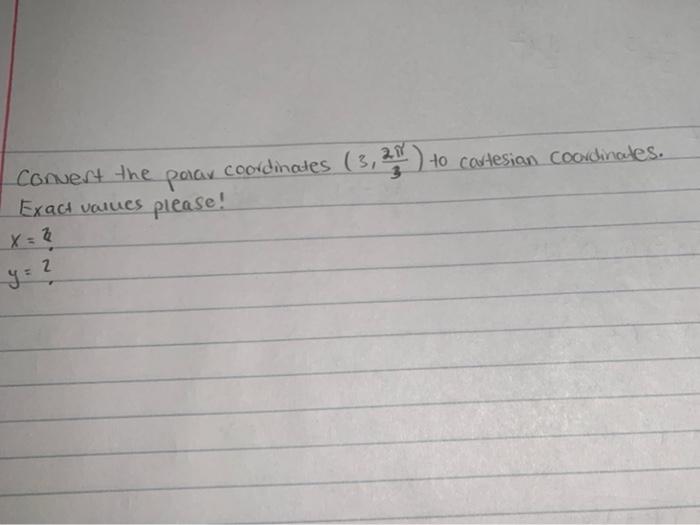 Convert the polar coordinates (3, 2π/3) to cartesian coordinates.
Exact values please!
x = ?
y = ?